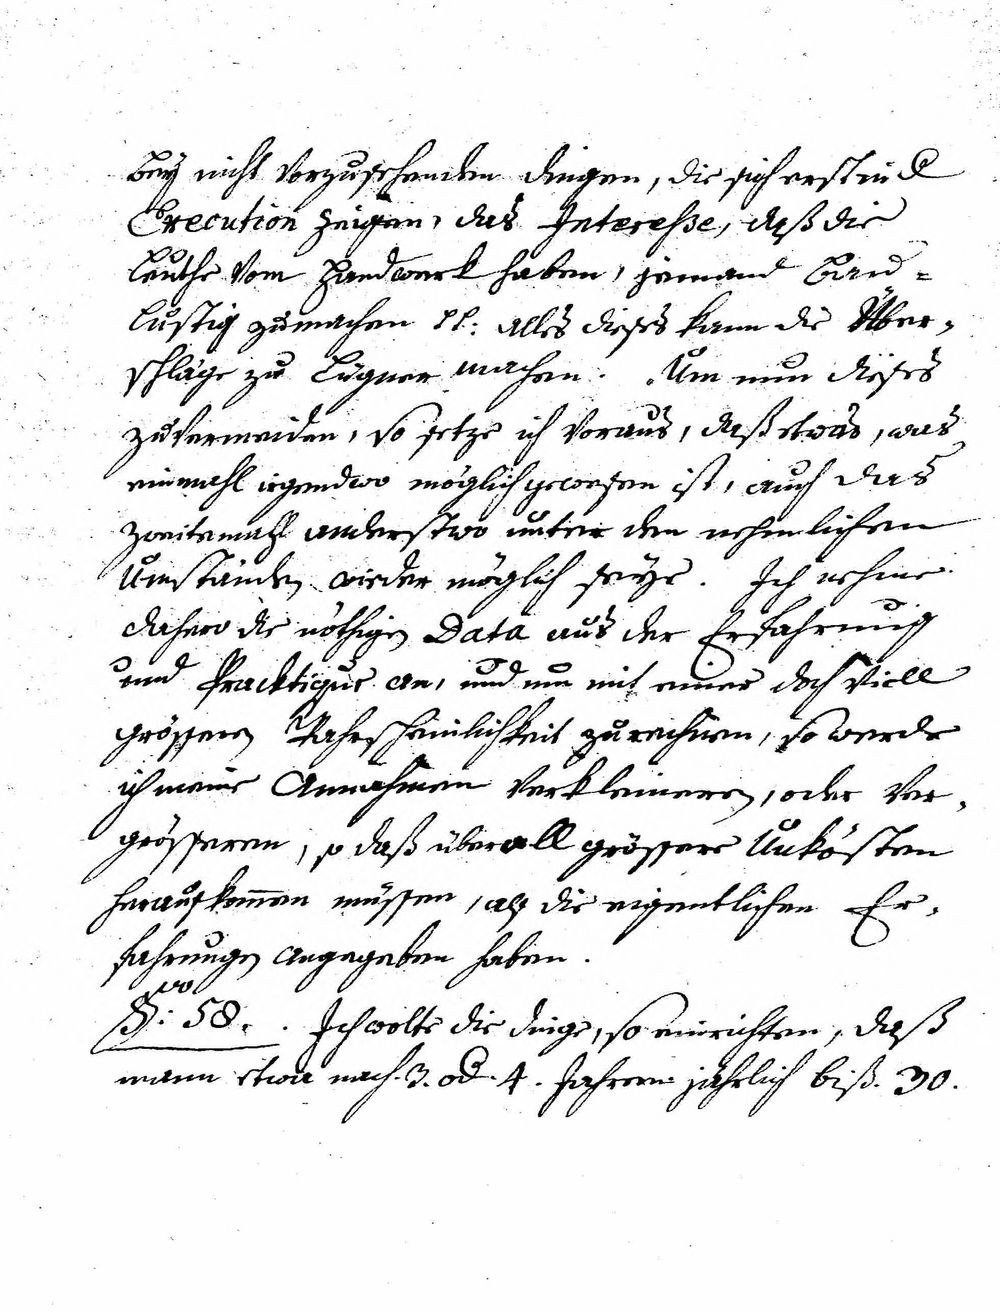 bey nicht vorzusehenden dingen, die sich erst in d
Execution zeigen, das Intereße, daß die
leuthe vom Handwerk haben, jemand bau=
lustig zumachen pp: alles dieses kann die Über,
schläge zu Lügner machen. Um nun dieses
zuvermeiden, so setze ich voraus, daß etwas, was
einmahl irgendwo möglich gewesen ist, auch das
zweitemahl anderstwo unter den nehmlichen
Umständen wieder möglich seye. Ich nehme
dahero die nöthigen Data aus der Erfahrung
und Pracktique an, und um mit einer doch viell
grössern Wahrscheinlichkeit zurechnen, so werde
ich meine Annahmen verkleineren, oder ver,
grösseren, so daß überall grössere Unkösten
herauskom̄en müssen, als die eigentlichen Er,
fahrungen angegeben haben.
§vo: 58. . Ich wolte die dinge, so einrichten, daß
mann etwa nach. 3. od. 4. Jahren jährlich biß. 30.